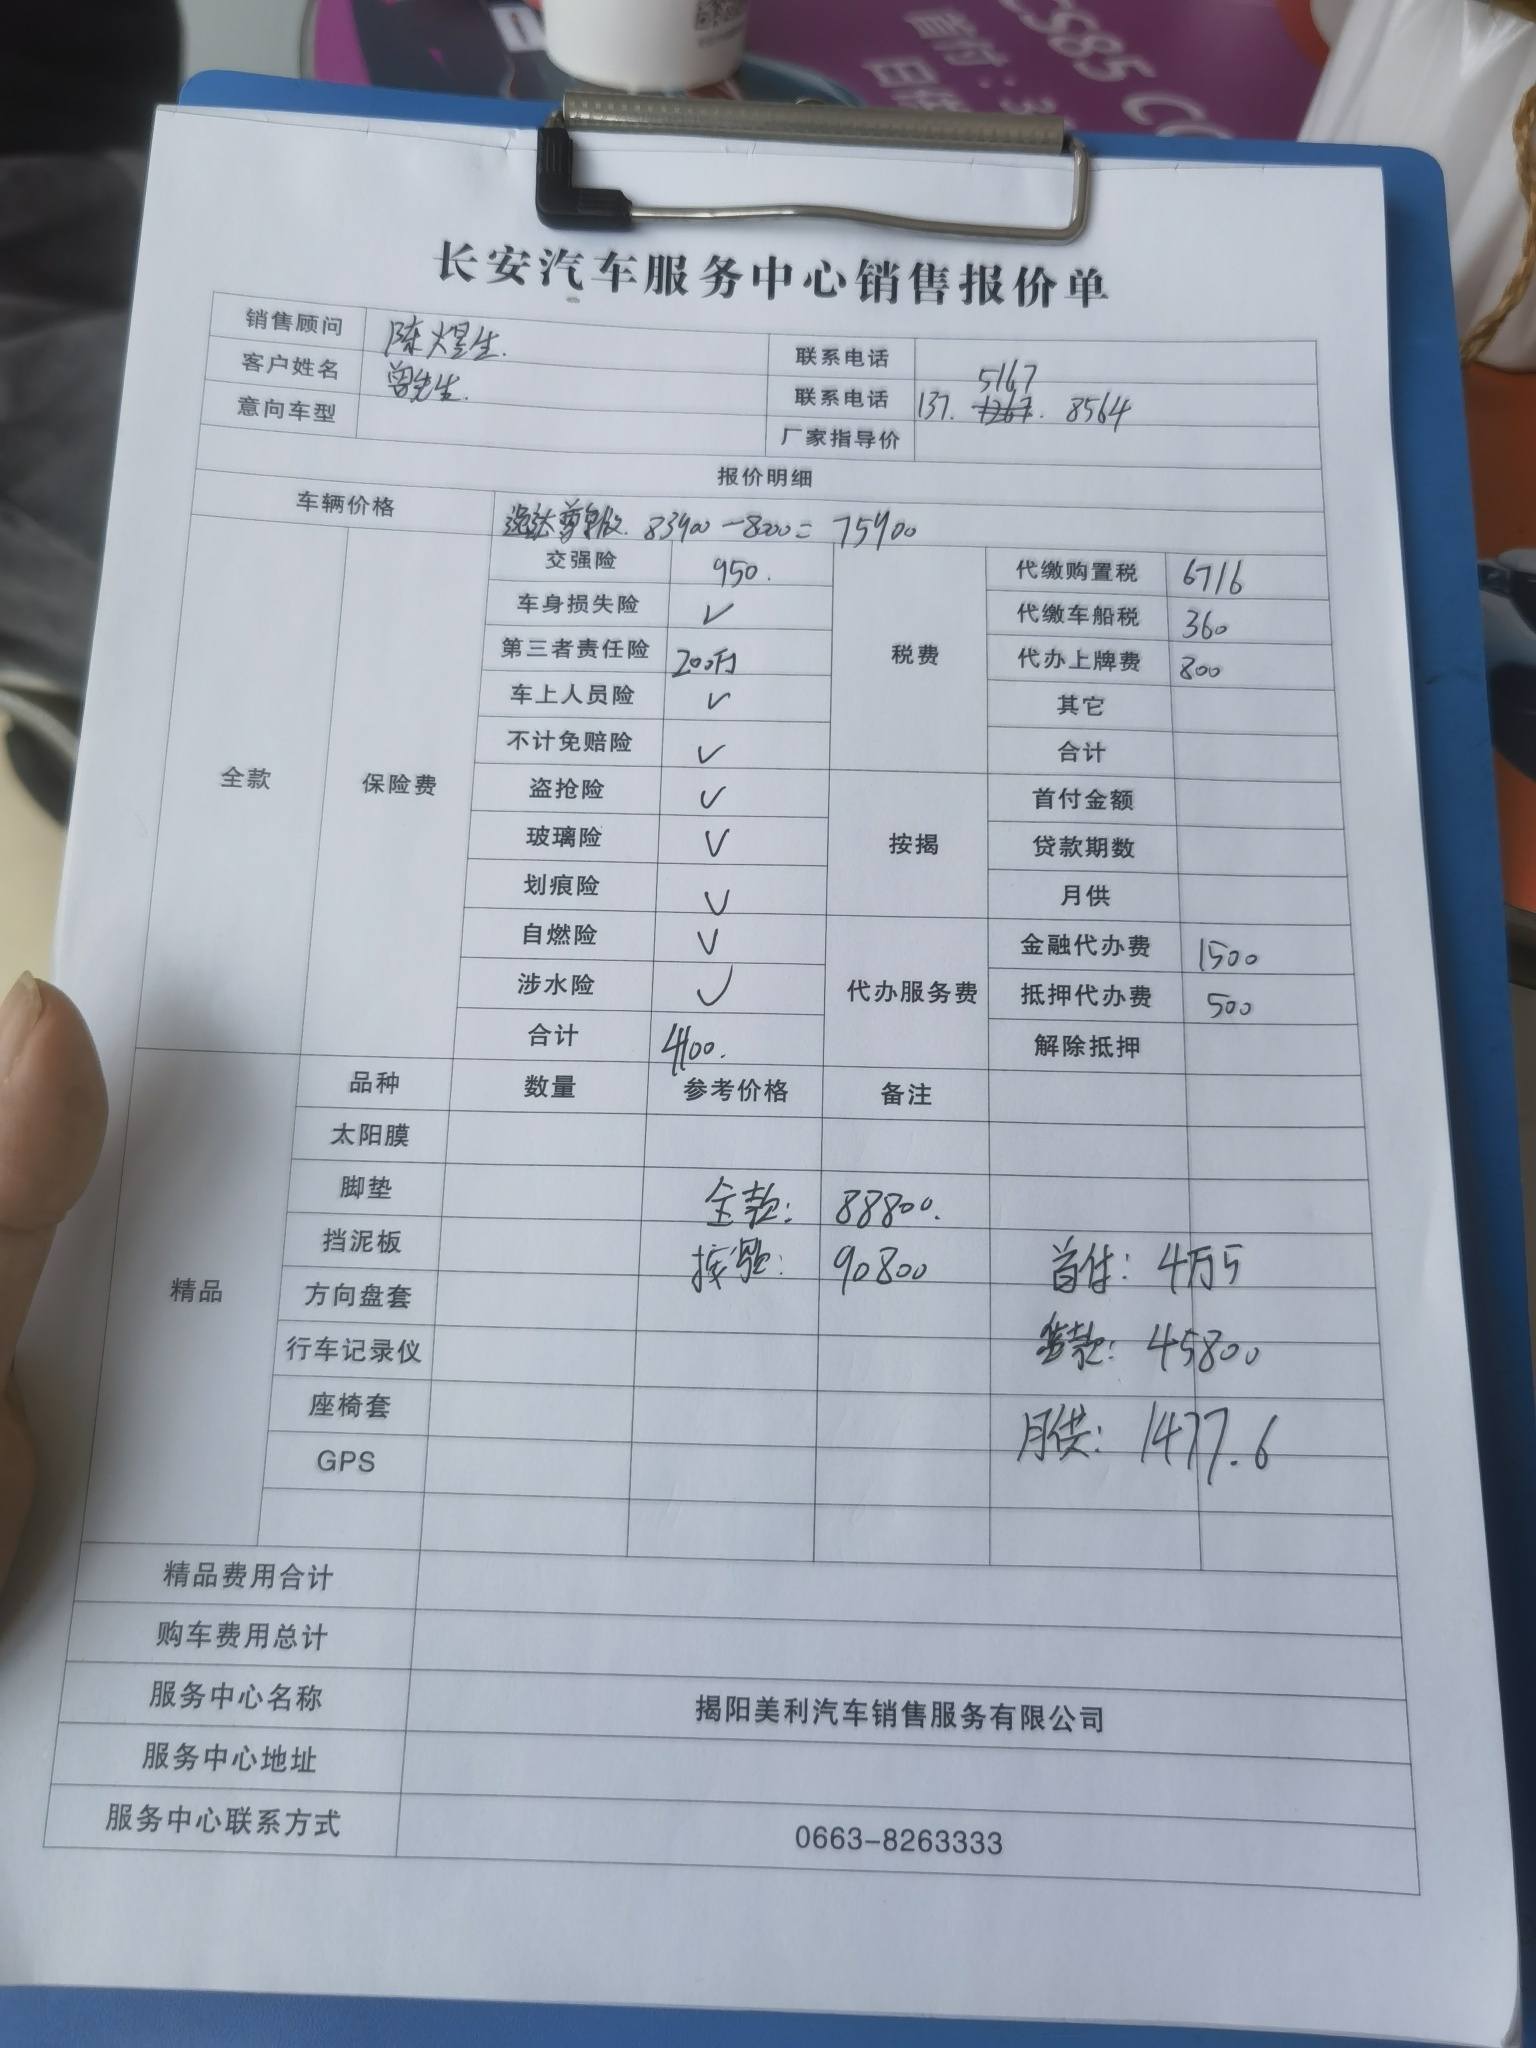 CS85 CO
首付:3
日供
长安汽车服务中心销售报价单
销售顾问 陈煜生. 联系电话
客户姓名 曾先生. 联系电话 137. 5167 8564
意向车型 厂家指导价
报价明细
车辆价格 逸达尊贵版. 83900-8000=75900
全款 保险费 交强险 950. 税费 代缴购置税 6716
车身损失险 ✓ 代缴车船税 360
第三者责任险 200万 代办上牌费 800
车上人员险 ✓ 其它
不计免赔险 ✓ 合计
盗抢险 ✓ 按揭 首付金额
玻璃险 ✓ 贷款期数
划痕险 ✓ 月供
自燃险 ✓ 代办服务费 金融代办费 1500
涉水险 ✓ 抵押代办费 500
合计 4100. 解除抵押
精品 品种 数量 参考价格 备注
太阳膜
脚垫 全款: 88800.
挡泥板 按揭: 90800 首付: 4万5
方向盘套
行车记录仪 贷款: 45800
座椅套 月供: 1477.6
GPS
精品费用合计
购车费用总计
服务中心名称 揭阳美利汽车销售服务有限公司
服务中心地址
服务中心联系方式 0663-8263333